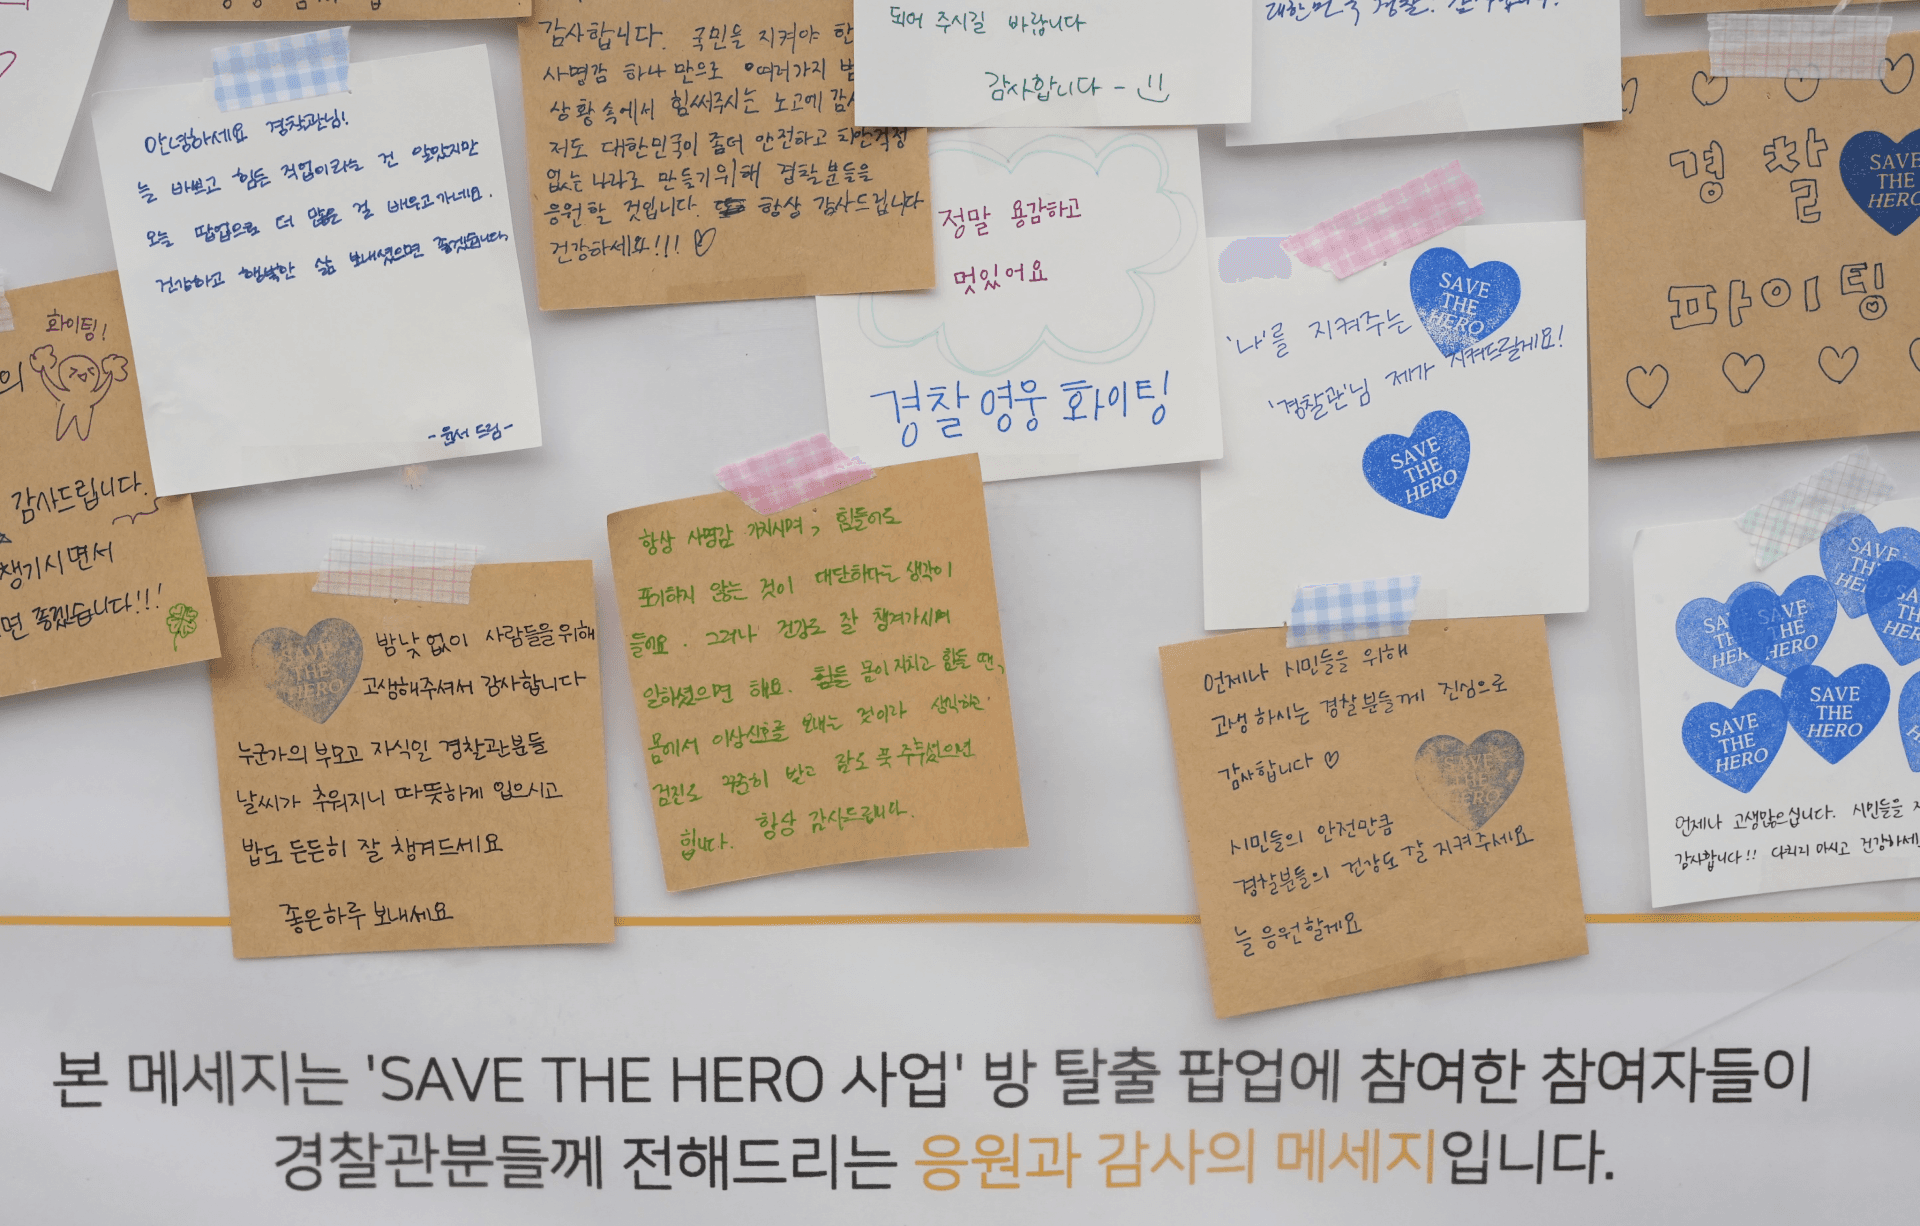 되어 주시길 바랍니다
감사합니다 -
감사합니다. 국민을 지켜야 한
사명감 하나 만으로 여러가지
상황 속에서 힘써주시는 노고에
저도 대한민국이 좀더 안전하고 치안걱정
없는 나라로 만들기위해 경찰분들을
응원할 것입니다. 항상 감사드립니다
건강하세요!!! ♡
안녕하세요 경찰관님!
늘 바쁘고 힘든 직업이라는 건 알았지만
오늘 팝업으로 더 많은 걸 배우고가네요.
건강하고 행복한 삶 보내셨으면 좋겠습니다.
-윤서 드림-
정말 용감하고
멋있어요
경찰 영웅 화이팅
'나'를 지켜주는
SAVE
THE
HERO
'경찰관'님 제가 지켜드릴게요!
SAVE
THE
HERO
경찰
SAVE
THE
HERO
파이팅
화이팅!
의
감사드립니다.
챙기시면서
면 좋겠습니다!!!
SAVE
THE
HERO
밤낮없이 사람들을위해
고생해주셔서 감사합니다
누군가의 부모고 자식일 경찰관분들
날씨가 추워지니 따뜻하게 입으시고
밥도 든든히 잘 챙겨드세요
좋은하루 보내세요
항상 사명감 가지시며, 힘들어도
포기하지 않는 것이 대단하다는 생각이
들어요. 그러나 건강도 잘 챙겨가시며
일하셨으면 해요. 힘들 몸이 지치고 힘들 땐,
몸에서 이상신호를 보내는 것이라 생각하고
검진도 꾸준히 받고 잠도 푹 주무셨으면
합니다. 항상 감사드립니다.
언제나 시민들을 위해
고생하시는 경찰분들께 진심으로
감사합니다 ♡
SAVE
THE
HERO
시민들의 안전만큼
경찰분들의 건강도 잘 지켜주세요
늘 응원할게요
SAVE
THE
HERO
SAVE
THE
HERO
SAVE
THE
HERO
SAVE
THE
HERO
언제나 고생많으십니다. 시민들을
감사합니다!! 다치지 마시고 건강하세
본 메세지는 'SAVE THE HERO 사업' 방 탈출 팝업에 참여한 참여자들이
경찰관분들께 전해드리는 응원과 감사의 메세지입니다.